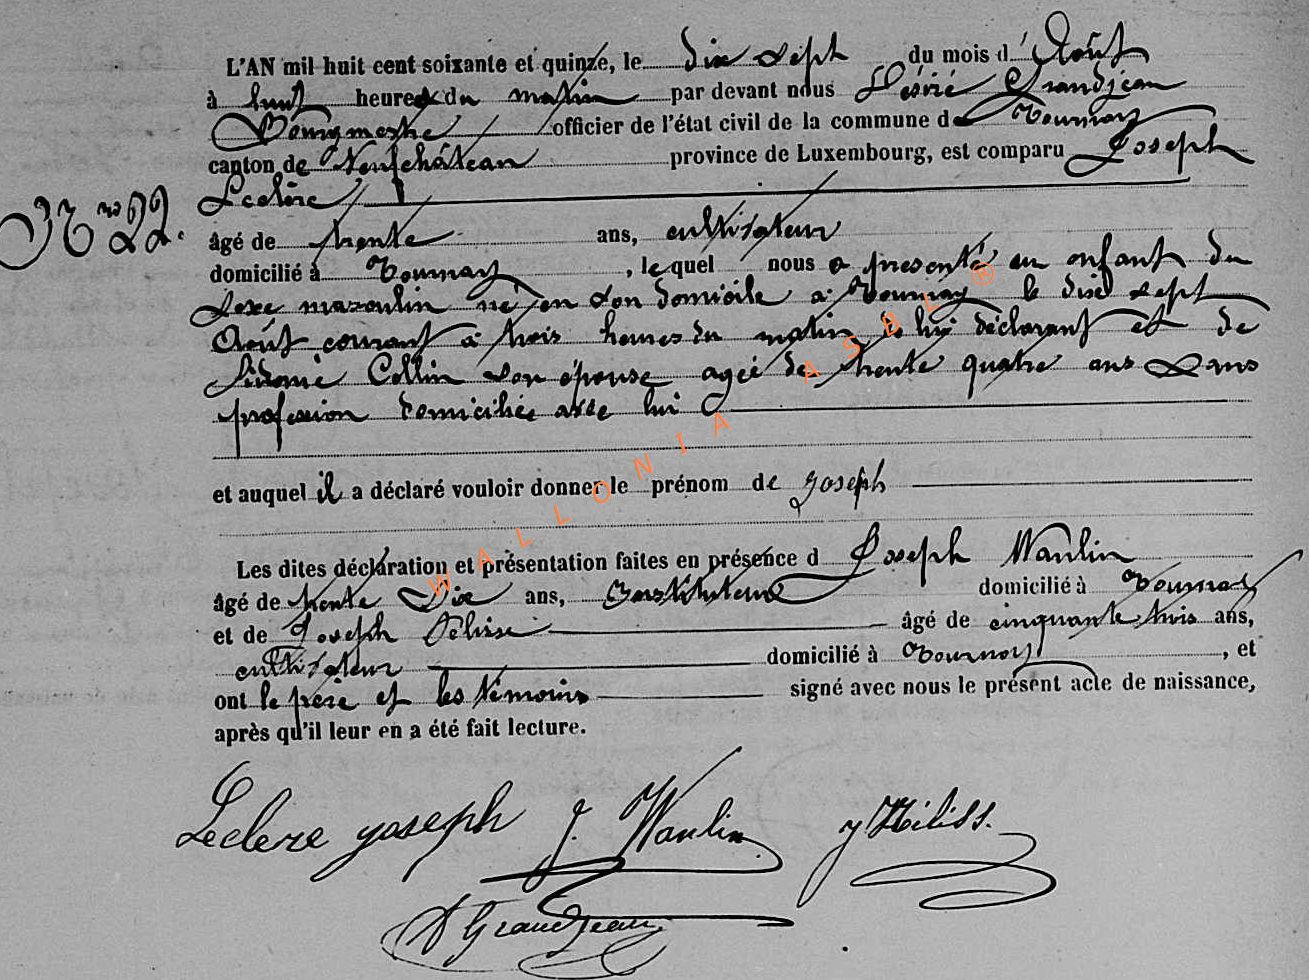 L'AN mil huit cent soixante et quinze, le dix sept du mois d'Août
à huit heures du matin par devant nous Désiré Grandjean
Bourgmestre officier de l'état civil de la commune de Tournay
canton de Neufchâteau province de Luxembourg, est comparu Joseph
Leclère
N° 22.
âgé de trente ans, cultivateur
domicilié à Tournay, lequel nous a presenté un enfant du
sexe masculin né en son domicile à Tournay le dix sept
Août courant à trois heures du matin de lui déclarant et de
Sidonie Collin son épouse agée de trente quatre ans sans
profession domiciliée avec lui
et auquel il a déclaré vouloir donner le prénom de Joseph
Les dites déclaration et présentation faites en présence d Joseph Waulin
âgé de trente Dix ans, Instituteur domicilié à Tournay
et de Joseph âgé de cinquante trois ans,
cultivateur domicilié à Tournay, et
ont le père et les témoins signé avec nous le présent acte de naissance,
après qu'il leur en a été fait lecture.
WALLONIA ASBL ®
Leclere joseph J. Waulin
D Grandjean